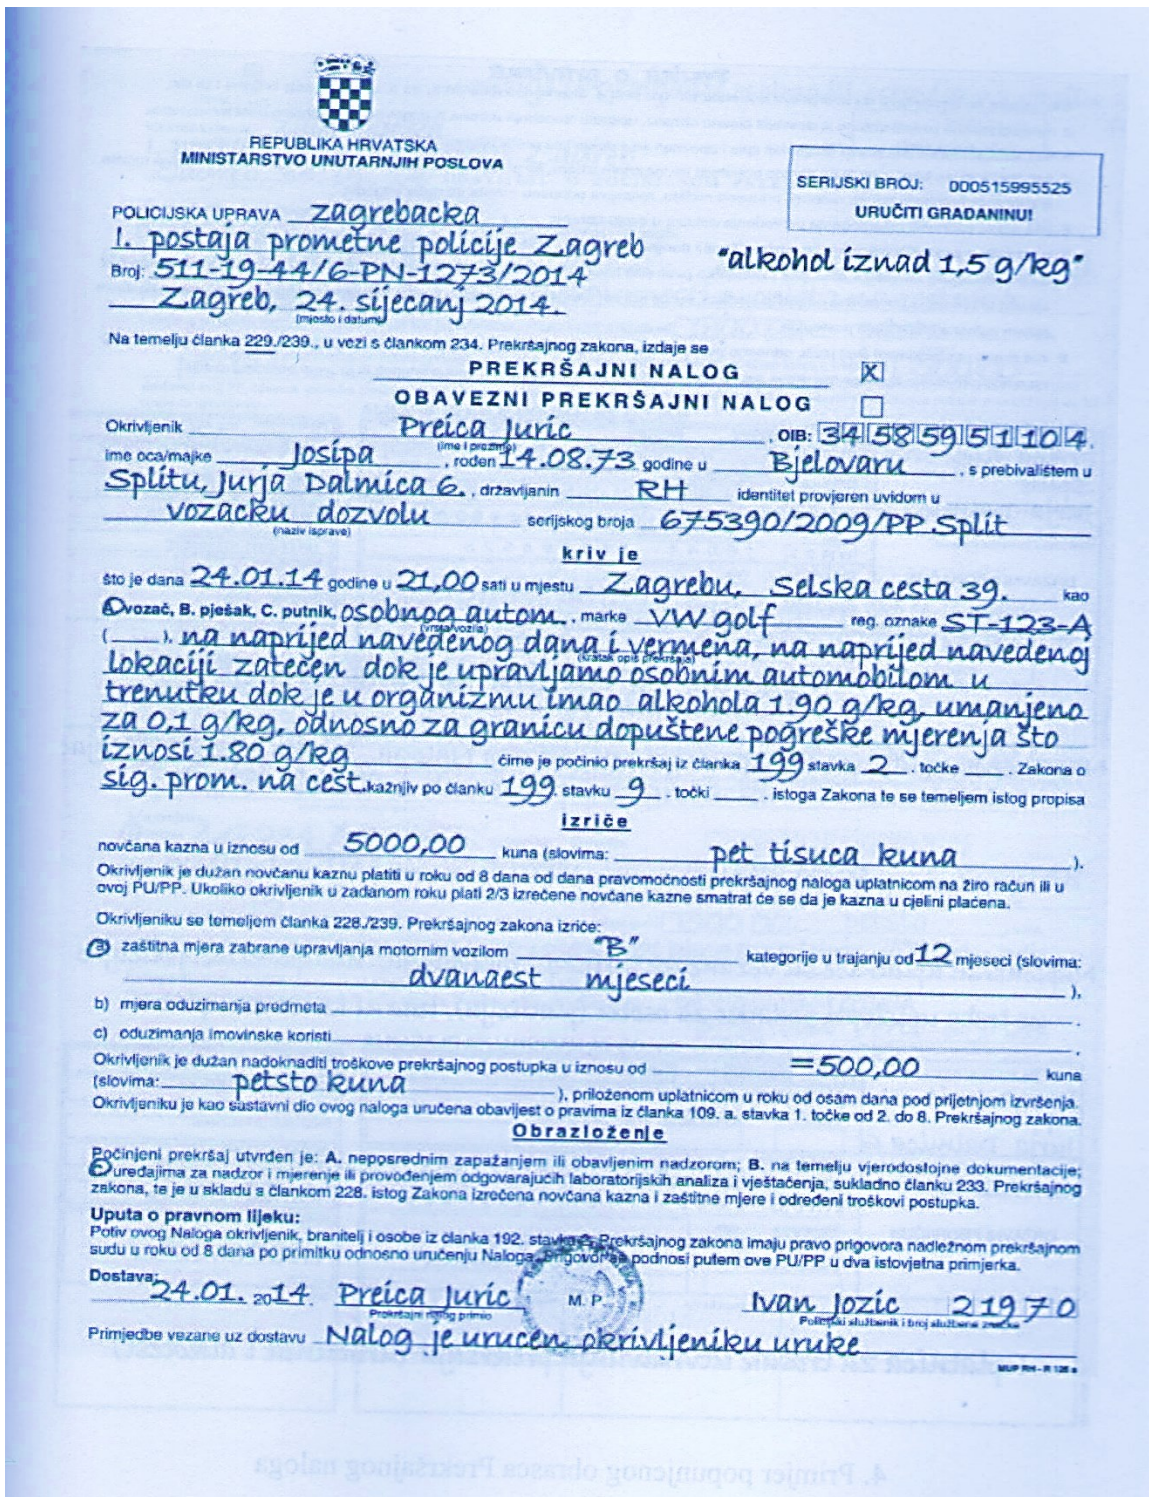 REPUBLIKA HRVATSKA
MINISTARSTVO UNUTARNJIH POSLOVA
SERIJSKI BROJ: 000515995525
URUČITI GRAĐANINU!
POLICIJSKA UPRAVA zagrebacka
1. postaja prometne policije Zagreb
"alkohol iznad 1,5 g/kg"
Broj: 511-19-44/6-PN-1273/2014
Zagreb, 24. sijecanj 2014.
(mjesto i datum)
Na temelju članka 229./239., u vezi s člankom 234. Prekršajnog zakona, izdaje se
PREKRŠAJNI NALOG X
OBAVEZNI PREKRŠAJNI NALOG
Okrivljenik Preica Juric , OIB: 34585951104.
(ime i prezime)
ime oca/majke Josipa , rođen 14.08.73 godine u Bjelovaru , s prebivalištem u
Splitu, Jurja Dalmica 6. , državljanin RH identitet provjeren uvidom u
vozacku dozvolu serijskog broja 675390/2009/PP Split
(naziv isprave)
kriv je
što je dana 24.01.14 godine u 21,00 sati u mjestu Zagrebu, Selska cesta 39. kao
A vozač, B. pješak, C. putnik, osobnog autom. marke VW golf reg. oznake ST-123-A
(vrsta vozila)
( ), na naprijed navedenog dana i vermena, na naprijed navedenoj
(kratak opis prekršaja)
lokaciji zatečen dok je upravljamo osobnim automobilom u
trenutku dok je u organizmu imao alkohola 1.90 g/kg, umanjeno
za 0,1 g/kg, odnosno za granicu dopuštene pogreške mjerenja što
iznosi 1.80 g/kg čime je počinio prekršaj iz članka 199 stavka 2 . točke . Zakona o
sig. prom. na cest. kažnjiv po članku 199. stavku 9 . točki . istoga Zakona te se temeljem istog propisa
izriče
novčana kazna u iznosu od 5000,00 kuna (slovima: pet tisuca kuna ).
Okrivljenik je dužan novčanu kaznu platiti u roku od 8 dana od dana pravomoćnosti prekršajnog naloga uplatnicom na žiro račun ili u
ovoj PU/PP. Ukoliko okrivljenik u zadanom roku plati 2/3 izrečene novčane kazne smatrat će se da je kazna u cjelini plaćena.
Okrivljeniku se temeljem članka 228./239. Prekršajnog zakona izriče:
a) zaštitna mjera zabrane upravljanja motornim vozilom "B" kategorije u trajanju od 12 mjeseci (slovima:
dvanaest mjeseci ),
b) mjera oduzimanja predmeta .
c) oduzimanja imovinske koristi .
Okrivljenik je dužan nadoknaditi troškove prekršajnog postupka u iznosu od =500,00 kuna
(slovima: petsto kuna ), priloženom uplatnicom u roku od osam dana pod prijetnjom izvršenja.
Okrivljeniku je kao sastavni dio ovog naloga uručena obavijest o pravima iz članka 109. a. stavka 1. točke od 2. do 8. Prekršajnog zakona.
Obrazloženje
Počinjeni prekršaj utvrđen je: A. neposrednim zapažanjem ili obavljenim nadzorom; B. na temelju vjerodostojne dokumentacije;
C uređajima za nadzor i mjerenje ili provođenjem odgovarajućih laboratorijskih analiza i vještačenja, sukladno članku 233. Prekršajnog
zakona, te je u skladu s člankom 228. istog Zakona izrečena novčana kazna i zaštitne mjere i određeni troškovi postupka.
Uputa o pravnom lijeku:
Potiv ovog Naloga okrivljenik, branitelj i osobe iz članka 192. stavka 2. Prekršajnog zakona imaju pravo prigovora nadležnom prekršajnom
sudu u roku od 8 dana po primitku odnosno uručenju Naloga. Prigovor se podnosi putem ove PU/PP u dva istovjetna primjerka.
Dostava:
24.01. 2014. Preica Juric M. P. Ivan Jozic 21970
Prekršajni nalog primio Policijski službenik i broj službene značke
Primjedbe vezane uz dostavu Nalog je urucen okrivljeniku uruke
MUP RH - R 126 a
4. Primjer popunjenog obrasca Prekršajnog naloga